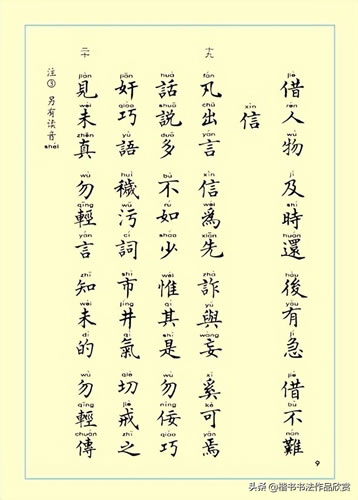 jiè rén wù jí shí huán hòu yǒu jí jiè bù nán
借人物 及時還 後有急 借不難
xìn
信
十九
fán chū yán xìn wéi xiān zhà yǔ wàng xī kě yān
凡出言 信爲先 詐與妄 奚可焉
huà shuō duō bù rú shǎo wéi qí shì wù nìng qiǎo
話說多 不如少 惟其是 勿佞巧
jiān qiǎo yǔ huì wū cí shì jǐng qì qiè jiè zhī
奸巧語 穢污詞 市井氣 切戒之
二十
jiàn wèi zhēn wù qīng yán zhī wèi dì wù qīng chuán
見未真 勿輕言 知未的 勿輕傳
注③ 另有读音 shéi
9
头条 @楷书书法作品欣赏